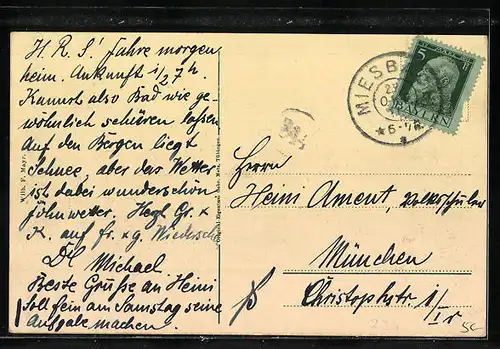 H. R. S! Fahre morgen
heim. Ankunft 1/2 7 h.
Kannst also Bad wie ge-
wöhnlich schüren lassen
Auf den Bergen liegt
Schnee, aber das Wetter
ist dabei wunderschön
Föhnwetter. Herzl Gr. x
K. auf fr. x g. Wiedersehn
Dl Michael
Beste Grüße an Heini
soll fein am Samstag seine
Aufgabe machen.
Wilh. F. Mayr,
MIESB
BAYERN
5
Herrn
Heini Ament, Volksschüler
München
Christophstr. 1/I r